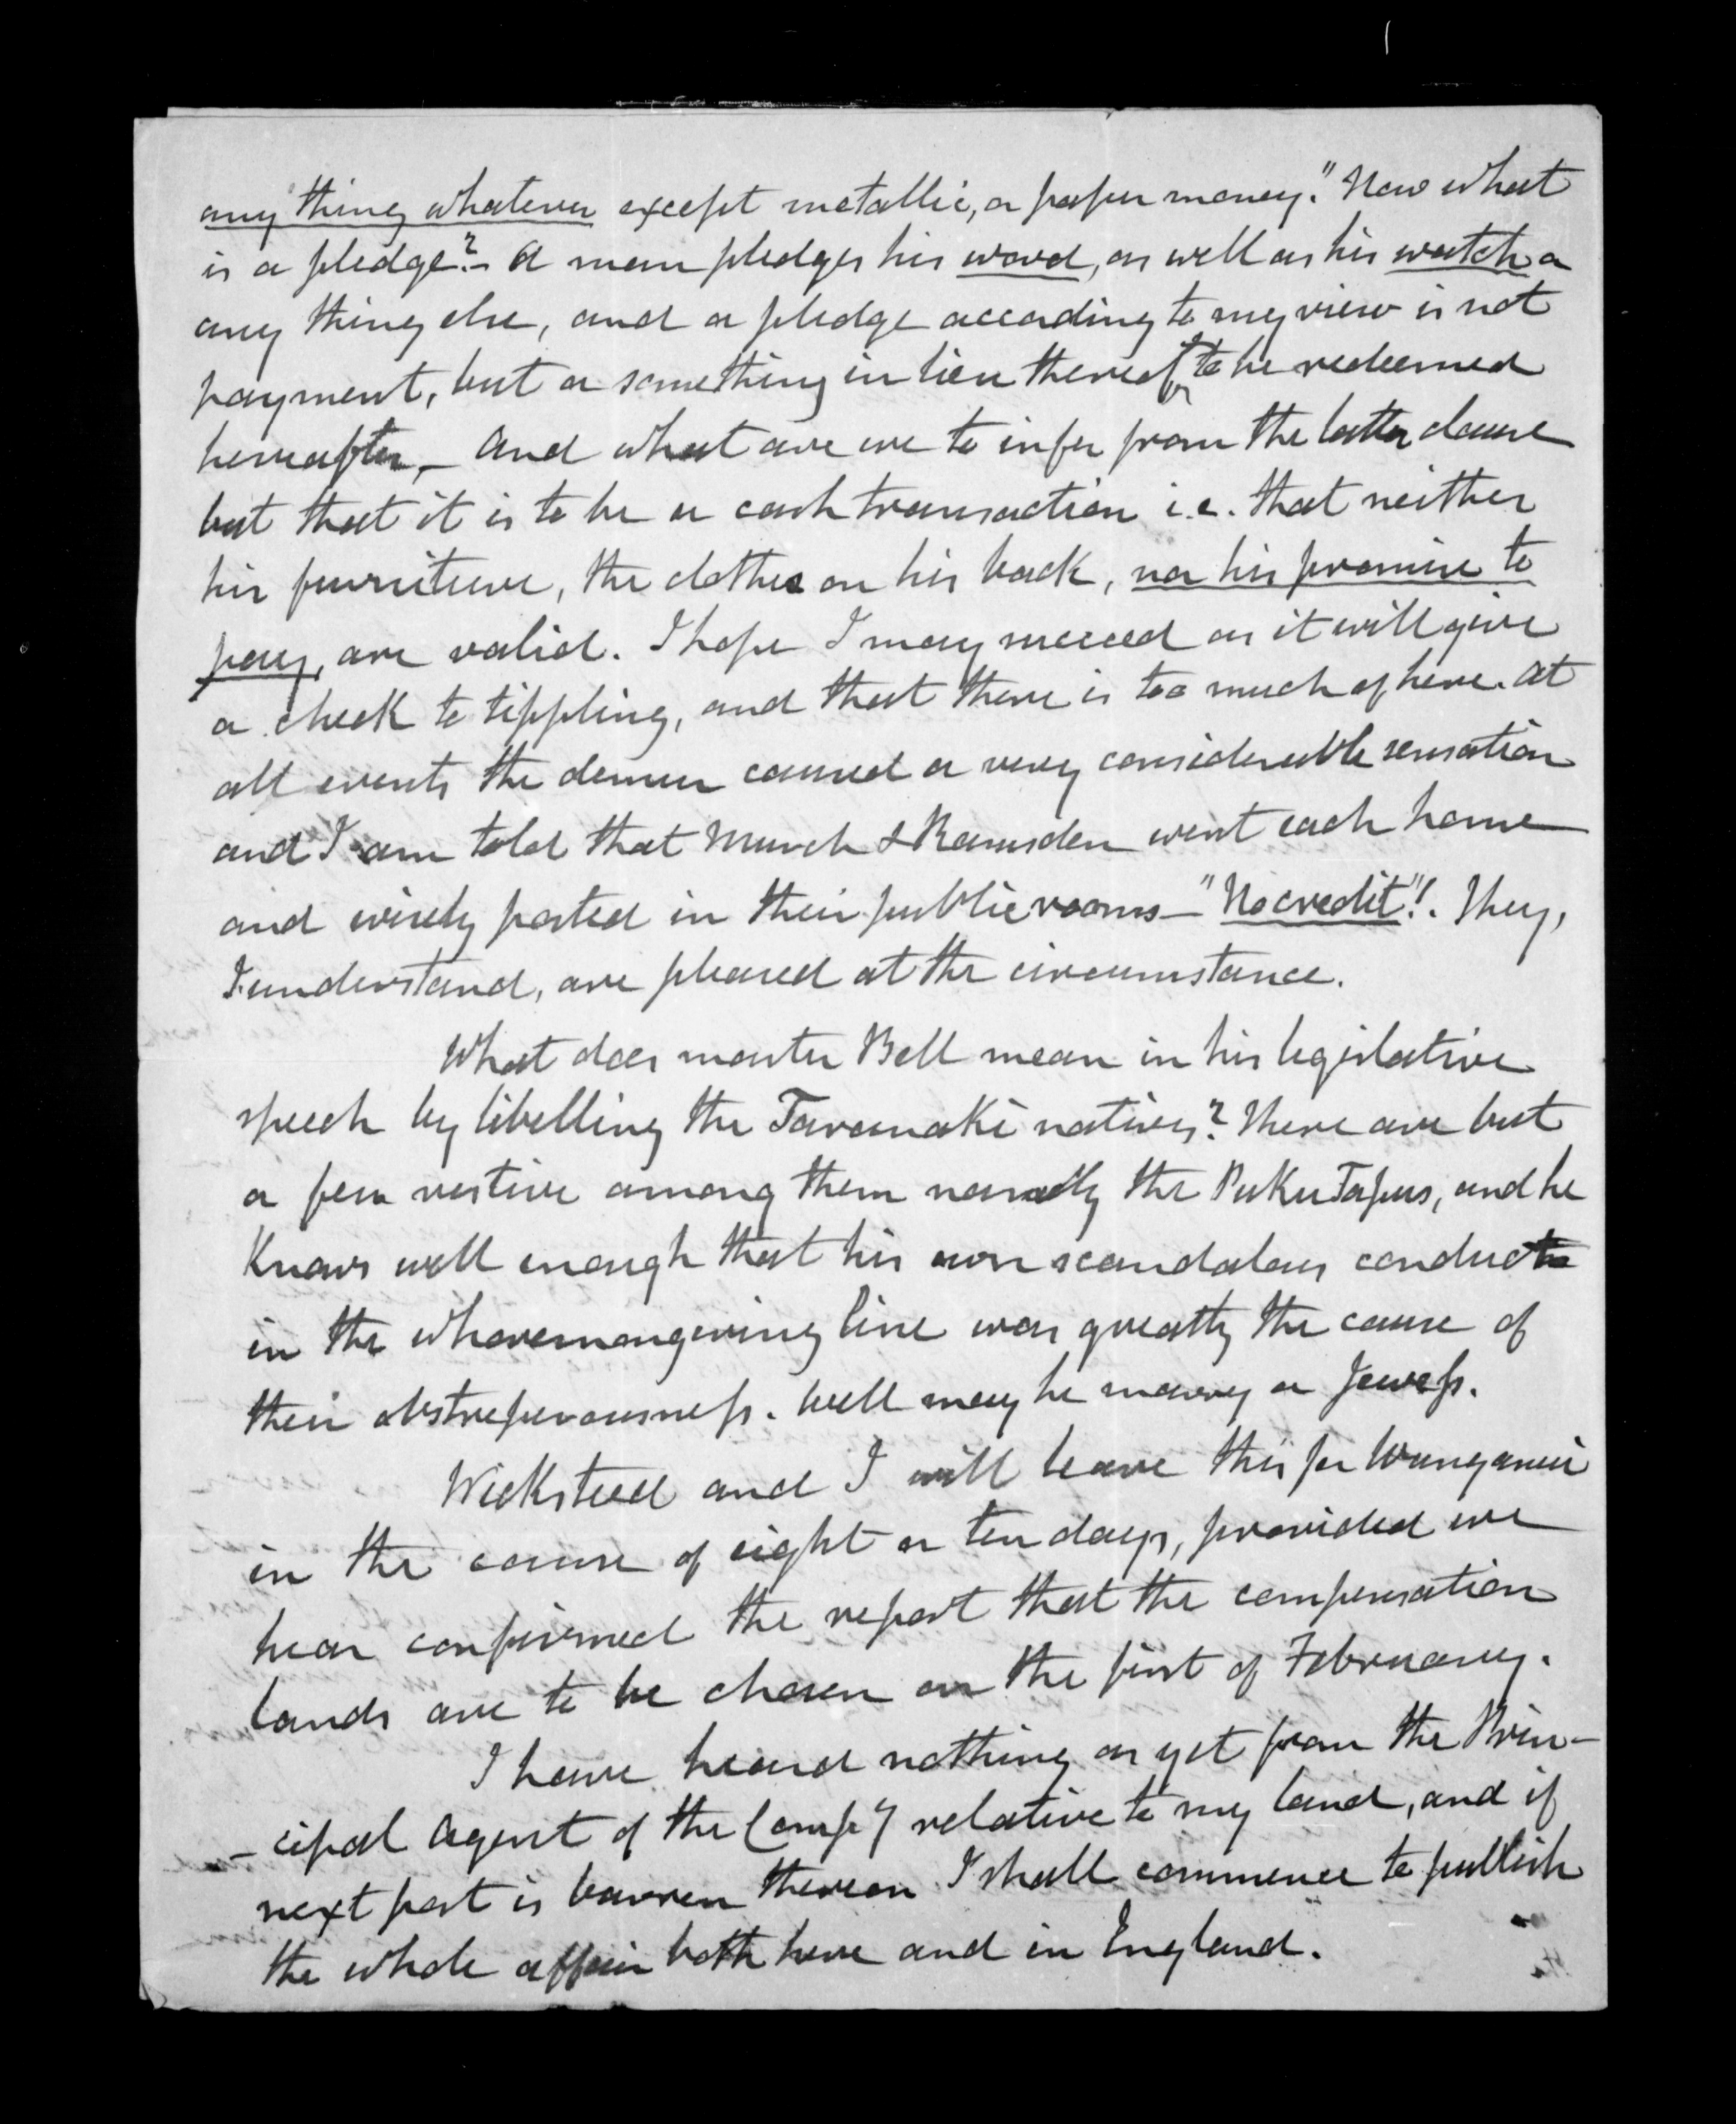 any thing whatever except metallic, or paper money." Now what
is a pledge?- A man pledges his word, as well as his watch or
any thing else, and a pledge according to my view is not
payment, but a something in lieu thereof, to be redeemed
hereafter,- And what are we to infer from the latter clause
but that it is to be a cash transaction i.e. that neither
his furniture, the clothes on his back, nor his promise to
pay, are valid. I hope I may succeed as it will give
a check to tippling, and that there is too much of here. At
all events the demur caused a very considerable sensation
and I am told that Murch & Ramsden went each home
and wisely posted in their public rooms - "No credit"!. They,
I understand, are pleased at the circumstance.
What does master Bell mean in his legislative
speech by libelling the Taranaki natives? There are but
a few restive among them namely the Puku Tapus, and he
Knows well enough that his own scandalous conduct
in the whoremongering line was greatly the cause of
their obstreperousness. Well may he marry a Jewess.
Wicksteed and I will leave this for Wanganui
in the course of eight or ten days, provided we
hear confirmed the report that the compensation
lands are to be chosen on the first of February.
I have heard nothing as yet from the Prin-
-cipal Agent of the Compy relative to my land, and if
next post is barren thereon I shall commence to publish
the whole affair both here and in England.